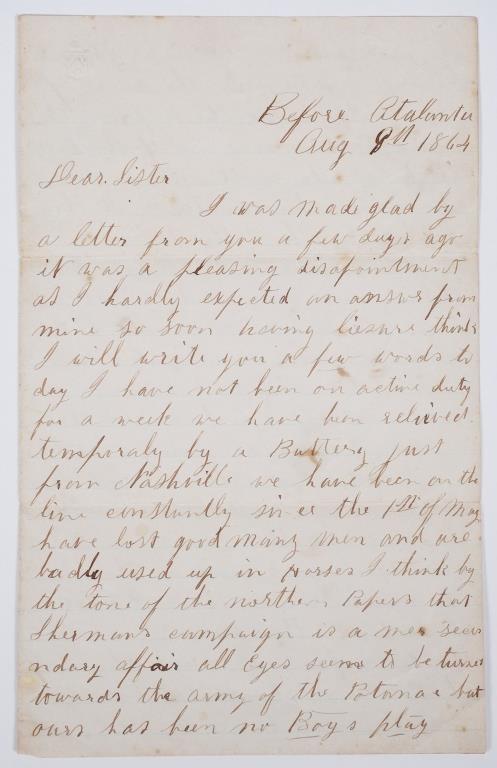 Before Atalanta
Aug 9th 1864
Dear Sister
I was made glad by
a letter from you a few days ago
it was a pleasing disapointment
as I hardly expected an answr from
mine so soon having liesure think
I will write you a few words to
day I have not been on active duty
for a week we have been relieved
temporaly by a Battery just
from Nashville we have been on the
line constantly since the 1st of May
have lost good many men and are
badly used up in horses I think by
the tone of the northern Papers that
Shermans campaign is a mer secu
ndary affair all Eyes seems to be turned
towards the army of the Potomac but
ours has been no Boys play